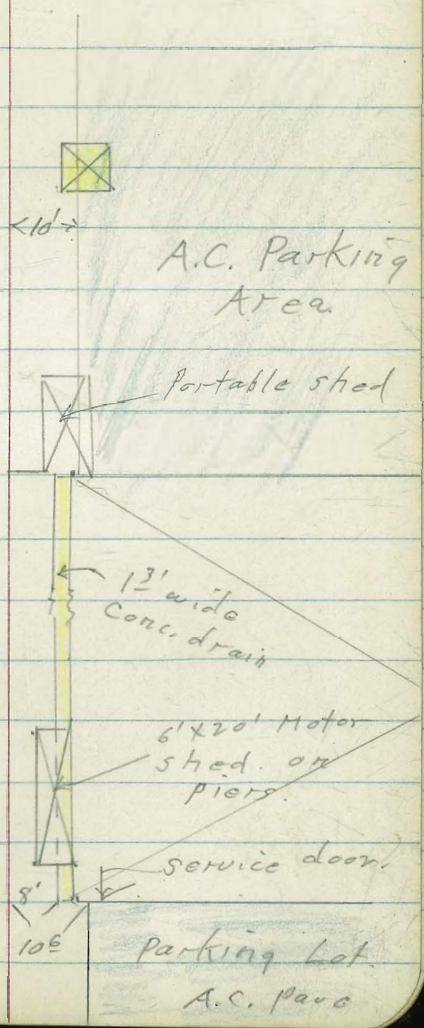 10'
A.C. Parking
Area
Portable shed
1 3' wide
Conc. drain
6' x 20' Motor
shed. on
piers.
service door.
8'
10 6
Parking Lot.
A.C. Pave